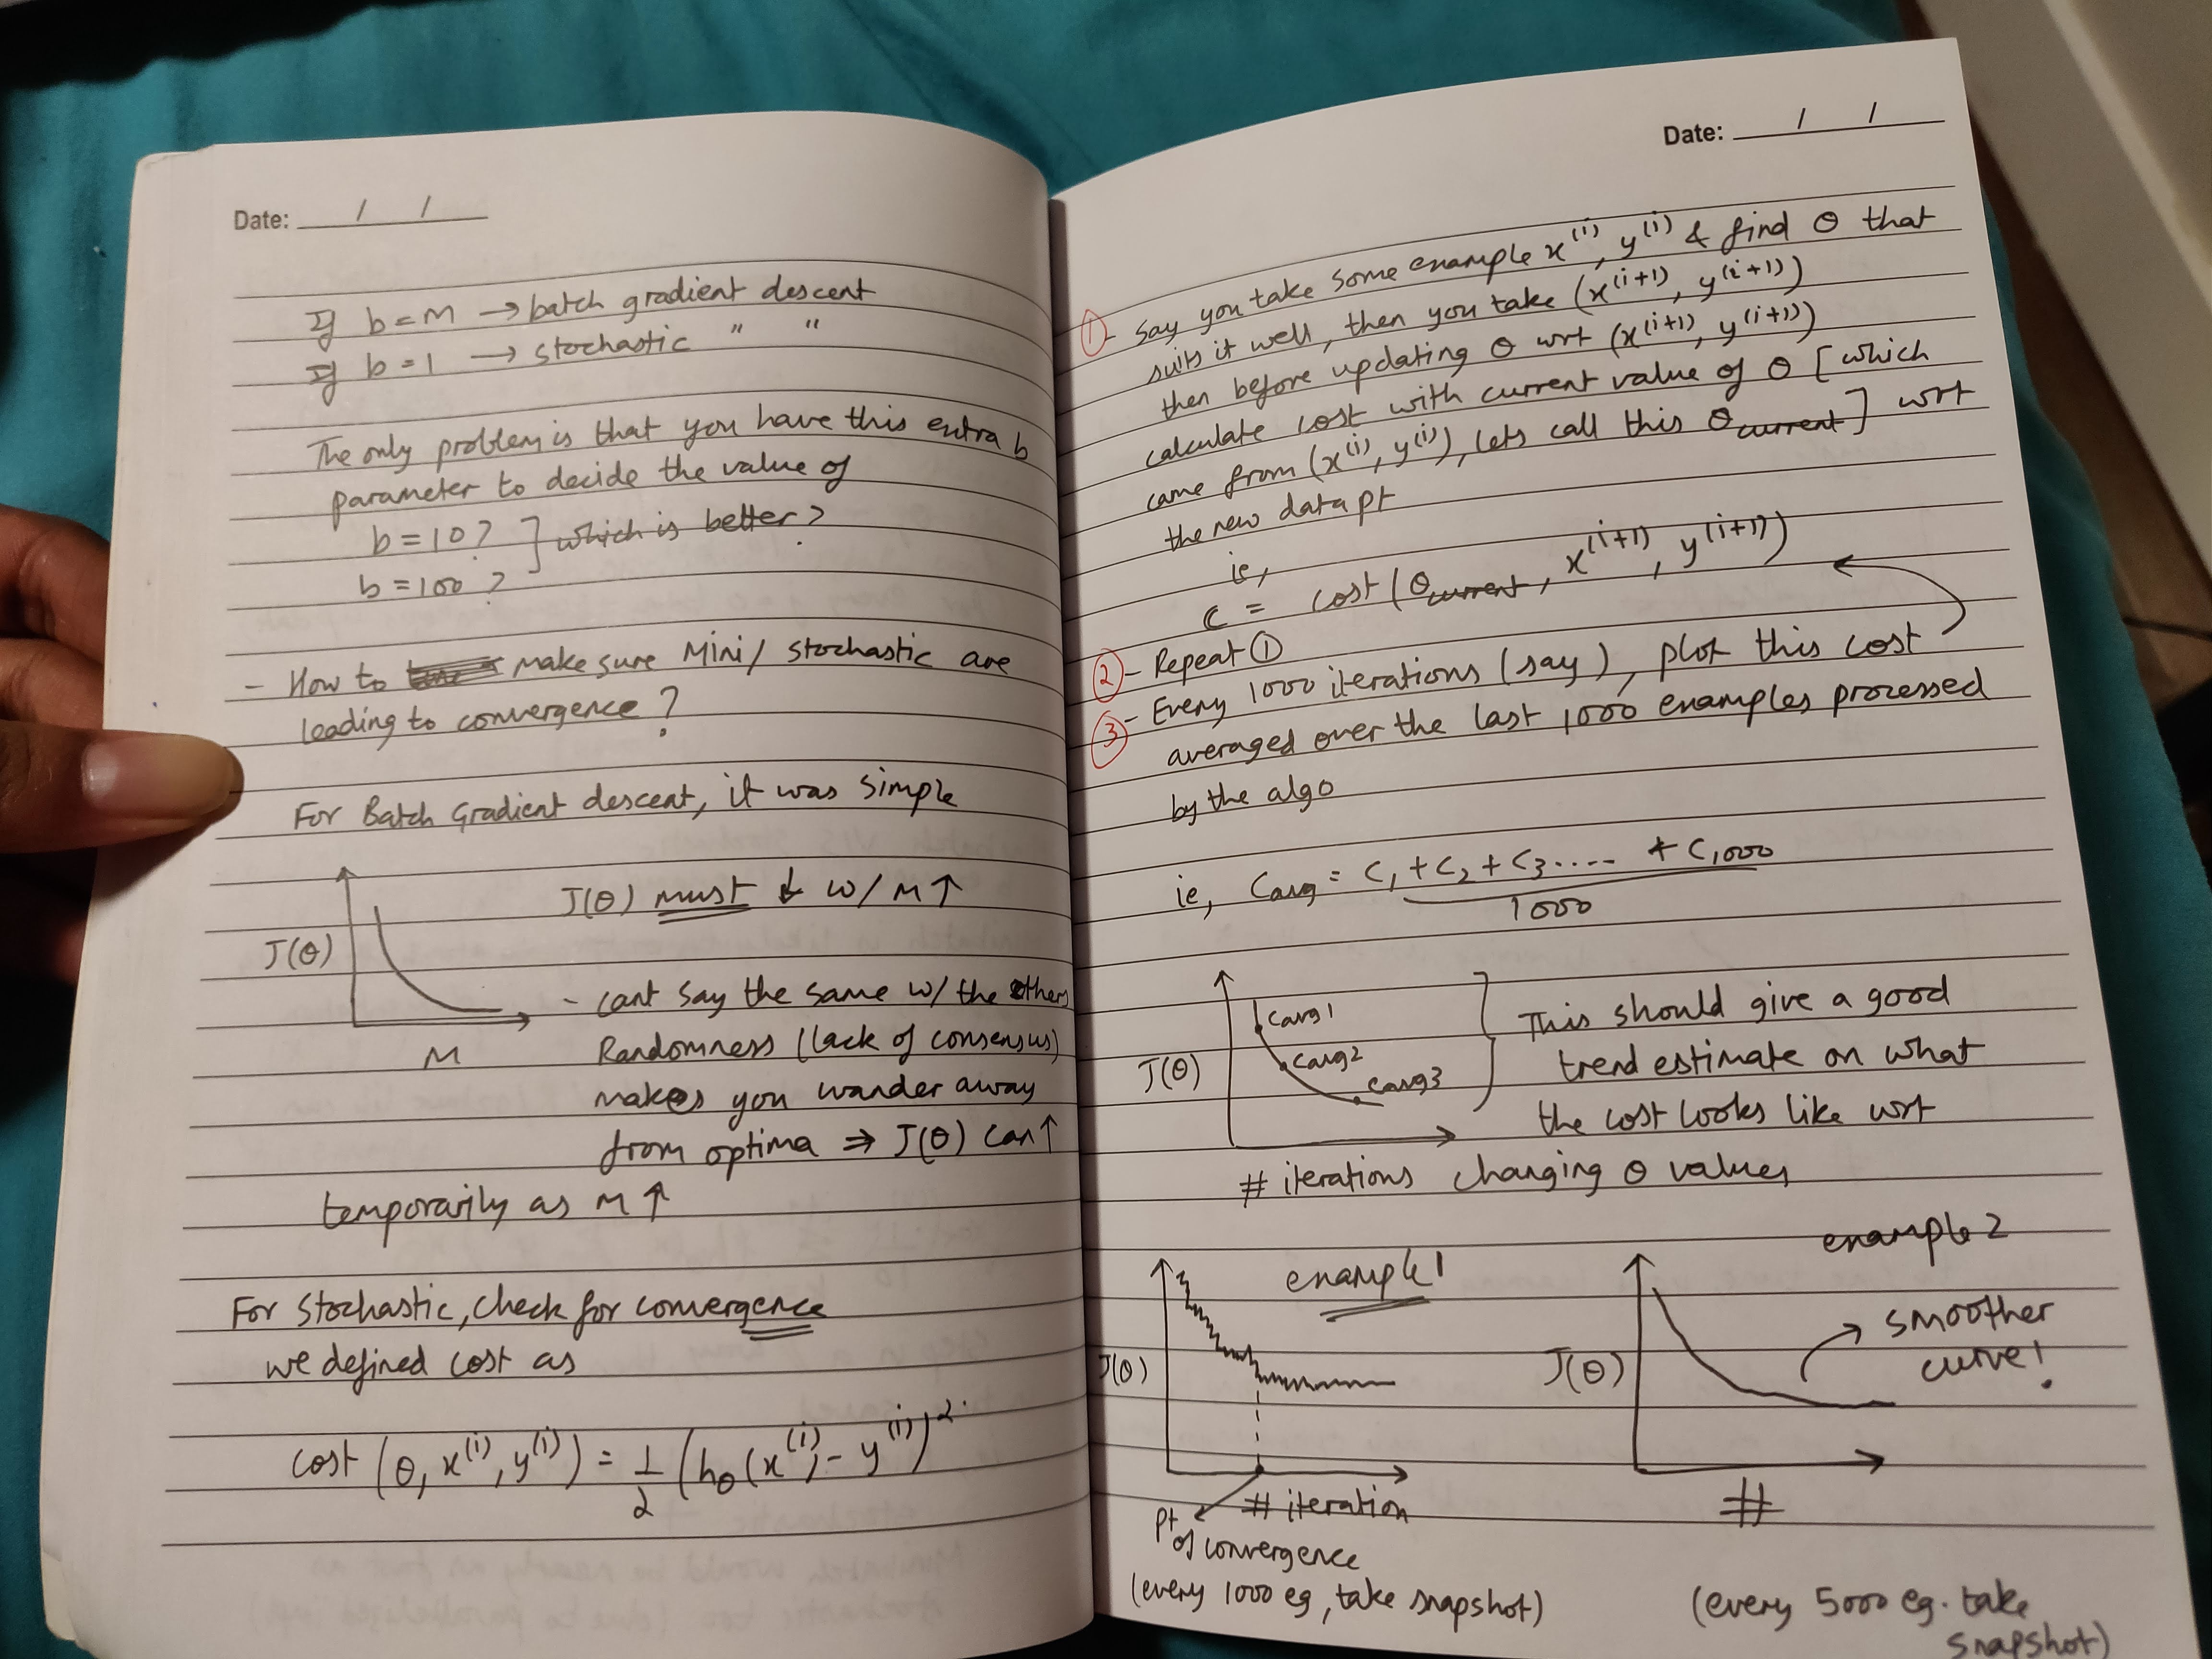 Date: / /
If b=M → batch gradient descent
If b=1 → stochastic " "
The only problem is that you have this extra b
parameter to decide the value of
b=10? ] which is better?
b=100?
- How to make sure Mini/ stochastic are
leading to convergence?
For Batch Gradient descent, it was simple
J(θ) must ↓ w/ M↑
J(θ)
M
- cant say the same w/ the others
Randomness (lack of consensus)
makes you wander away
from optima ⇒ J(θ) can↑
temporarily as M↑
For Stochastic, check for convergence
we defined cost as
cost (θ, x^(i), y^(i)) = 1/2 (hθ(x^(i)) - y^(i))^2.
Date: / /
① - Say you take some example x^(i), y^(i) & find θ that
suits it well, then you take (x^(i+1), y^(i+1))
then before updating θ wrt (x^(i+1), y^(i+1))
calculate cost with current value of θ [which
came from (x^(i), y^(i)), lets call this θcurrent] wrt
the new data pt
ie,
C = cost (θcurrent, x^(i+1), y^(i+1))
② - Repeat ①
③ - Every 1000 iterations (say), plot this cost
averaged over the last 1000 examples processed
by the algo
ie, Cavg = C1 + C2 + C3..... + C1000
1000
Cavg1
Cavg2
Cavg3
J(θ)
# iterations
This should give a good
trend estimate on what
the cost looks like wrt
changing θ values
example 1
J(θ)
# iteration
Pt of convergence
(every 1000 eg, take snapshot)
example 2
smoother
curve!
J(θ)
#
(every 5000 eg. take
snapshot)